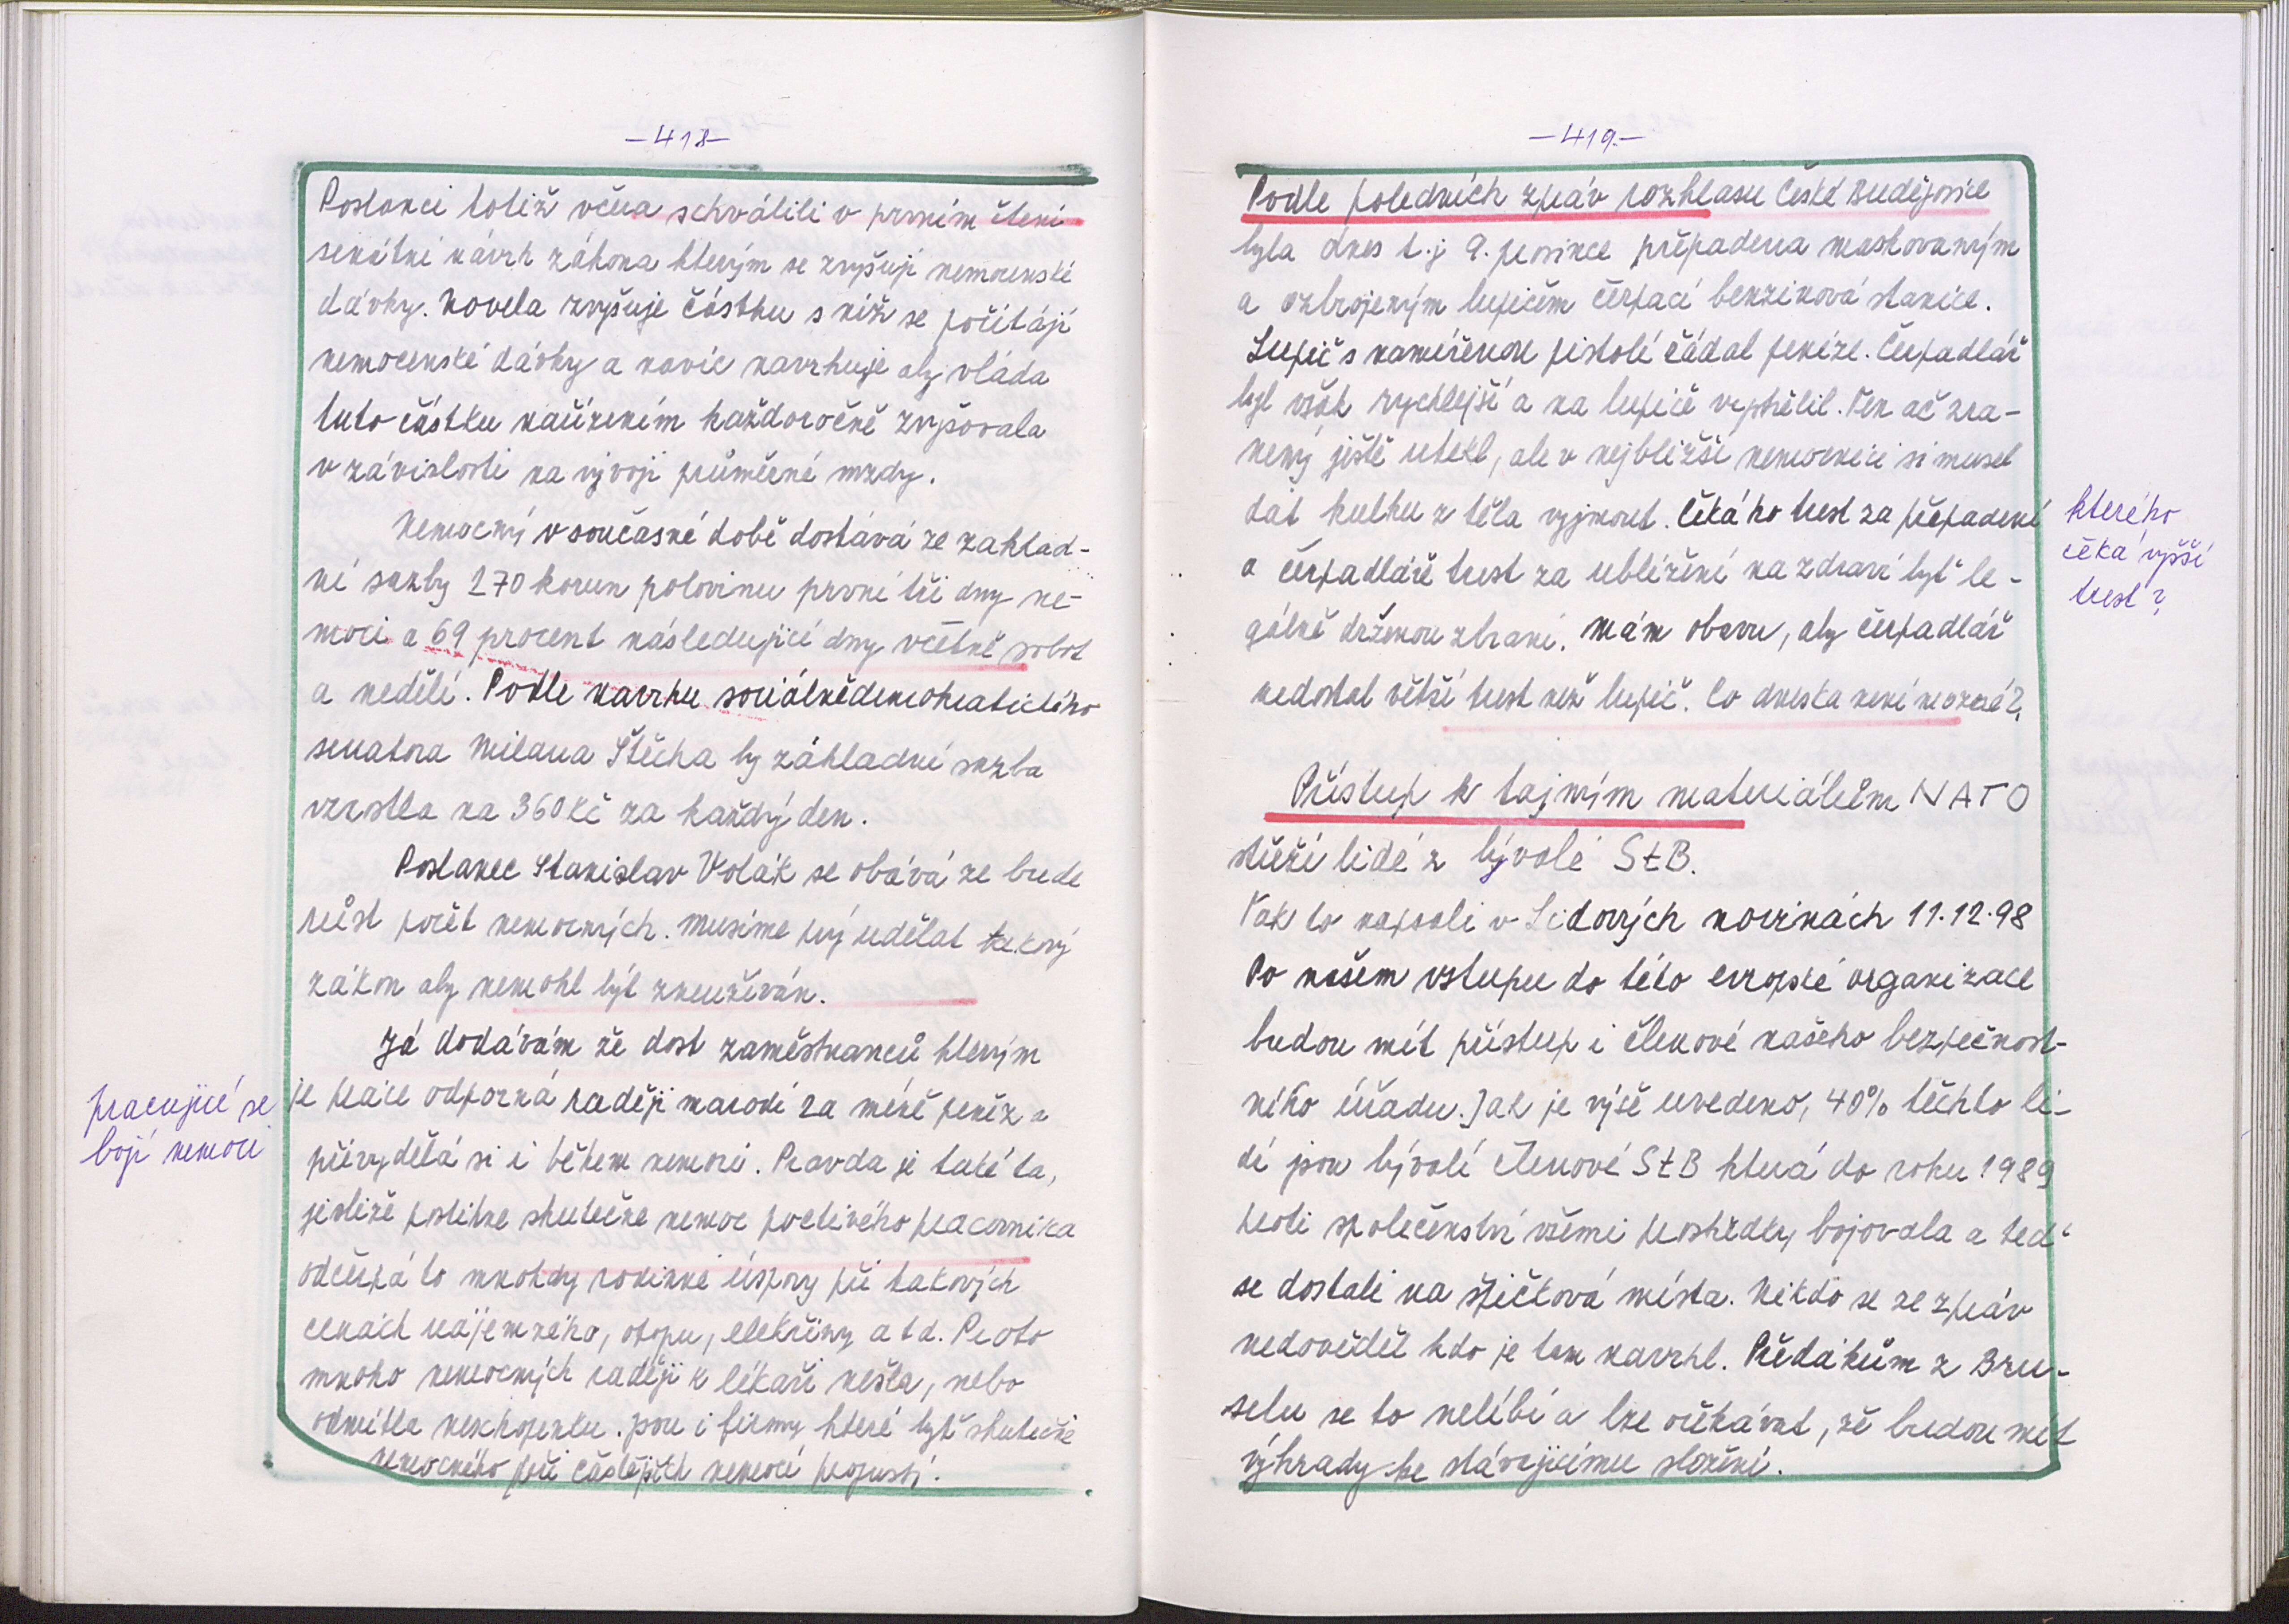 -418-
Poslanci totiž včera schválili v prvním čtení
senátní návrh zákona kterým se zvyšují nemocenské
dávky. Novela zvyšuje částku s níž se počítájí
nemocenské dávky a navíc navrhuje aby vláda
tuto částku nařízením každoročně zvyšovala
v závislosti na vývoji průměrné mzdy.
Nemocný v současné době dostává ze základ-
ní sazby 270 korun polovinu první tři dny ne-
moci a 69 procent následující dny včetně sobot
a nedělí. Podle navrhu sociálnědemokratického
senatora Milana Štěcha by základní sazba
vzrostla na 360 Kč za každý den.
Poslanec Stanislav Volák se obává že bude
růst počet nemocných. Musíme prý udělat takový
zákon aby nemohl být zneužíván.
Já dodávám že dost zaměstnanců kterým
je práce odporná raději marodí za méně peněz a
přivydělá si i během nemoci. Pravda je také ta,
jestliže postihne skutečne nemoc poctivého pracovníka
odčerpá to mnohdy rodinné úspory při takových
cenách nájemného, otopu, elekřiny atd. Proto
mnoho nemocných raději k lékaři nešla, nebo
odmítla neschopenku. Jsou i firmy které byť skutečně
nemocného při častějších nemoci propustí.
pracující se
bojí nemoci
-419-
Podle poledních zpráv rozhlasu České Budějovice
byla dnes t.j 9. prosince přepadena maskovaným
a ozbrojeným lupičem čerpací benzinová stanice.
Lupič s namířenou pistolí žádal peníze. Čerpadlář
byl však rychlejší a na lupiče vystřelil. Ten ač zra-
nený ještě utekl, ale v nejbližší nemocnici si musel
dát kulku z těla vyjmout. Čeká ho trest za přepadení
a čerpadláře trest za ublížení na zdraví byť le-
gálně drženou zbraní. Mám obavu, aby čerpadlář
nedostal větší trest než lupič. Co dneska není možné?
kterého
čeká vyšší
trest?
Přístup k tajným materiálům NATO
střeží lidé z bývalé StB.
Tak to napsali v Lidových novinách 11.12.98
Po našem vstupu do této evropské organizace
budou mít přístup i členové našeho bezpečnost-
ního úřadu. Jak je výše uvedeno, 40% těchto li-
dí jsou bývalí členové StB která do roku 1989
proti společenství všemi prostředky bojovala a teď
se dostali na špičková místa. Nikdo se ze zpráv
nedověděl kdo je tam navrhl. Předákům z Bru-
selu se to nelíbí a lze očekávat, že budou mít
výhrady ke stávajícímu složení.